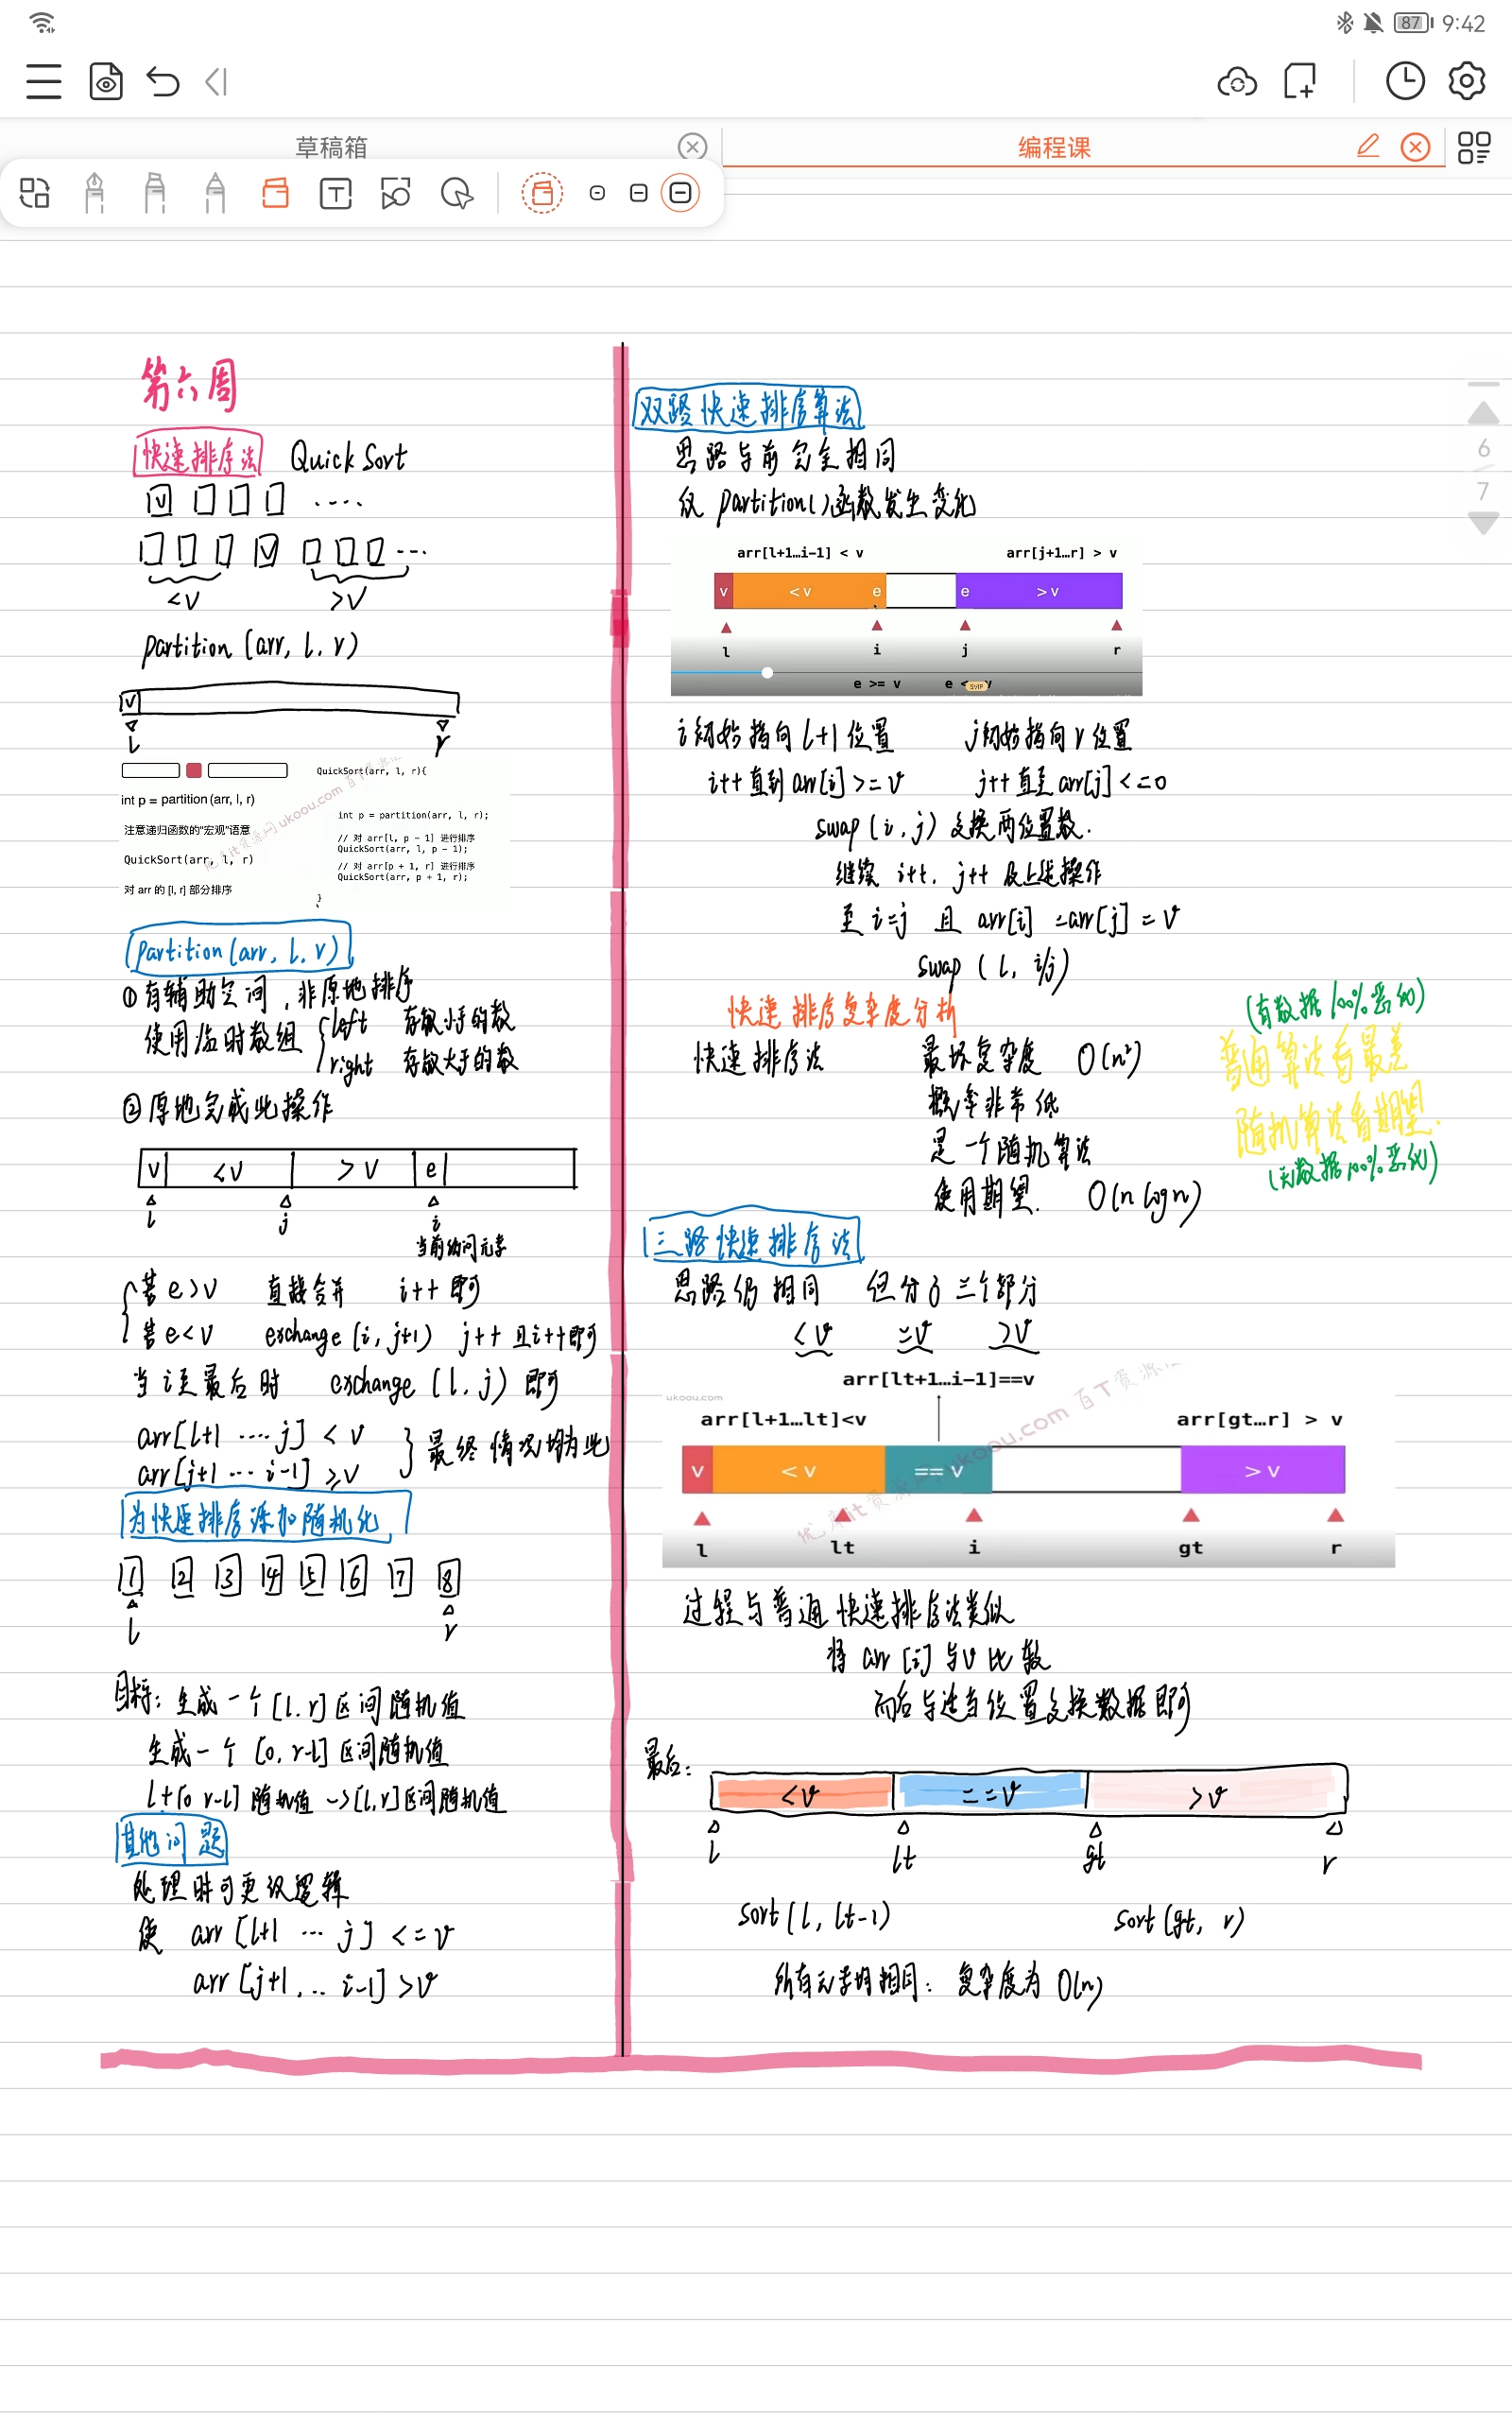 9:42
87
草稿箱
编程课
6
7
第六周
快速排序法 Quick Sort
v ....
v ...
<v >v
partition (arr, l, r)
v
l r
QuickSort(arr, l, r){
int p = partition (arr, l, r)
int p = partition(arr, l, r);
注意递归函数的“宏观”语意
// 对 arr[l, p - 1] 进行排序
QuickSort(arr, l, p - 1);
QuickSort(arr, l, r)
// 对 arr[p + 1, r] 进行排序
QuickSort(arr, p + 1, r);
对 arr 的 [l, r] 部分排序
}
partition (arr, l, r)
①有辅助空间，非原地排序
使用临时数组 left 存放小于的数
right 存放大于的数
②原地完成此操作
v <v >v e
l j i
当前访问元素
若 e>v 直接合并 i++ 即可
若 e<v exchange (i, j+1) j++ 且 i++ 即可
当 i 至最后时 exchange (l, j) 即可
arr[l+1 ···· j] < v
arr[j+1 ··· i-1] ≥v
最终情况均为此
为快速排序添加随机化
1 2 3 4 5 6 7 8
l r
目标：生成一个 [l, r] 区间随机值
生成一个 [0, r-l] 区间随机值
l+[0 r-l] 随机值 -> [l, r] 区间随机值
其他问题
处理时可更改逻辑
使 arr [l+1 ··· j] <= v
arr [j+1, ... i-1] > v
双路快速排序算法
思路与前完全相同
仅 partition( ) 函数发生变化
arr[l+1…i-1] < v arr[j+1…r] > v
v < v e e > v
l i j r
e >= v e < v
SVIP
i 初始指向 l+1 位置 j 初始指向 r 位置
i++ 直到 arr[i] >= v j++ 直至 arr[j] <=0
swap (i, j) 交换两位置数.
继续 i++, j++ 及上述操作
至 i=j 且 arr[i] =arr[j] = v
swap ( l, i/j)
快速排序复杂度分析
快速排序法 最坏复杂度 O(n²)
概率非常低
是一个随机算法
使用期望. O(n logn)
(有数据 100% 恶化)
普通算法看最差
随机算法看期望.
(无数据 100% 恶化)
三路快速排序法
思路仍相同 但分了三个部分
<v =v >v
arr[lt+1…i-1]==v
ukoou.com
arr[l+1…lt]<v arr[gt…r] > v
v < v == v > v
l lt i gt r
过程与普通快速排序法类似
将 arr [i] 与 v 比较
而后与适当位置交换数据即可
最后：
<v ==v >v
l lt gt r
sort (l, lt-1) sort (gt, r)
所有元素均相同：复杂度为 O(n)